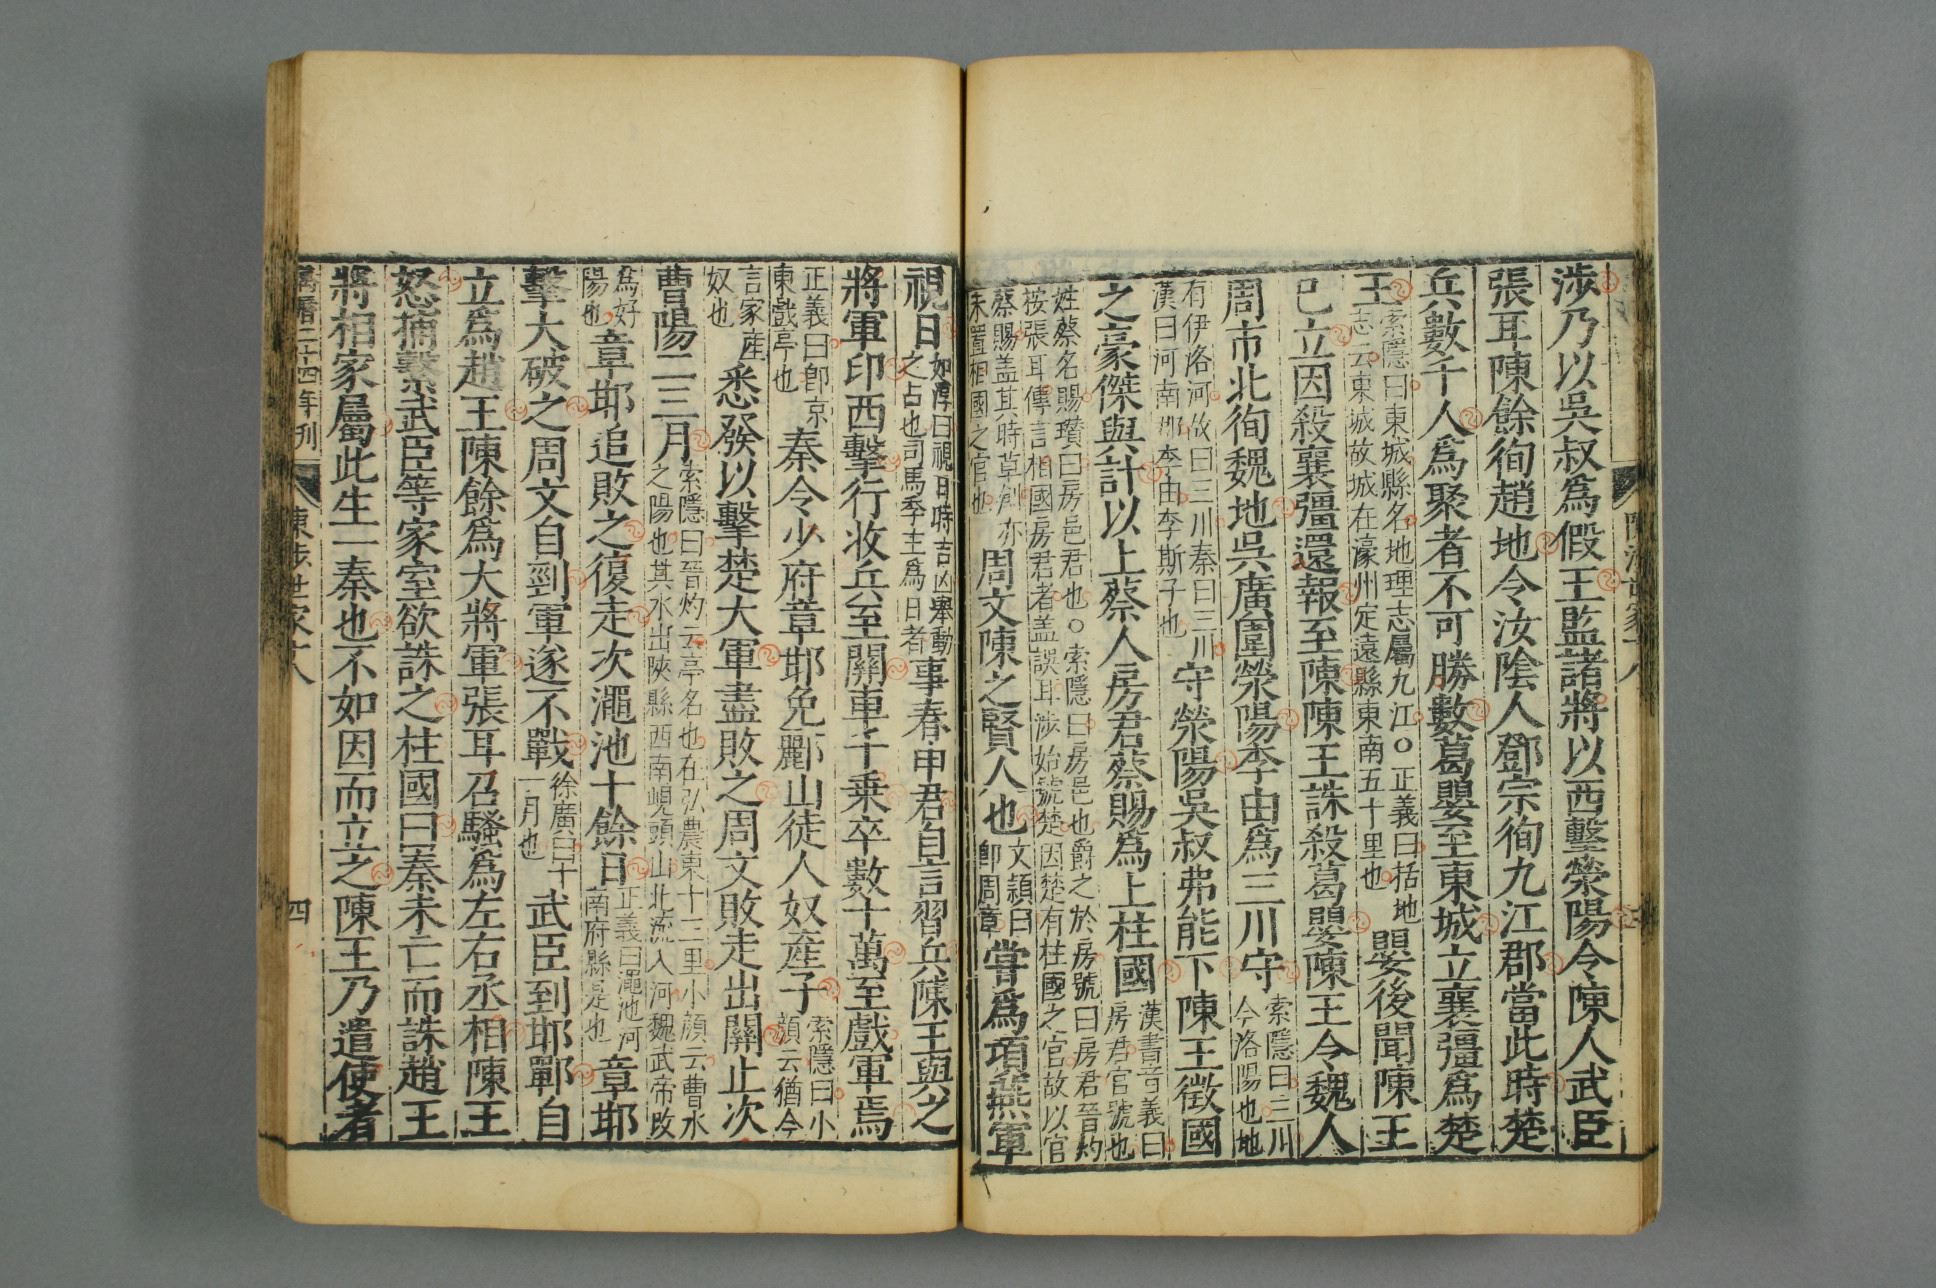 涉乃以吳叔爲假王監諸將以西擊滎陽令陳人武臣
張耳陳餘徇趙地令汝陰人鄧宗徇九江郡當此時楚
兵數千人爲聚者不可勝數葛嬰至東城立襄彊爲楚
王索隱曰東城縣名地理志屬九江○正義曰括地志云東城故城在濠州定遠縣東南五十里也嬰後聞陳王
已立因殺襄彊還報至陳陳王誅殺葛嬰陳王令魏人
周市北徇魏地吳廣圍滎陽李由爲三川守索隱曰三川今洛陽也地
有伊洛河故曰三川秦曰三川漢曰河南郡李由李斯子也守滎陽吳叔弗能下陳王徵國
之豪傑與計以上蔡人房君蔡賜爲上柱國漢書音義曰房君官號也
姓蔡名賜瓚曰房邑君也○索隱曰房邑也爵之於房號曰房君晉灼按張耳傳言相國房君者蓋誤耳涉始號楚因楚有柱國之官故以官
蔡賜蓋其時草創亦未置相國之官也周文陳之賢人也文穎曰卽周章嘗爲項燕軍
視日如淳曰視日時吉凶舉動之占也司馬季主爲日者事春申君自言習兵陳王與之
將軍印西擊秦行收兵至關車千乘卒數十萬至戲軍焉
正義曰卽京東戲亭也秦令少府章邯免酈山徒人奴產子索隱曰小顏云猶今
言家產奴也悉發以擊楚大軍盡敗之周文敗走出關止次
曹陽二三月索隱曰晉灼云亭名也在弘農東十三里小顏云曹水之陽也其水出陝縣西南峴頭山北流入河魏武帝改
爲好陽也章邯追敗之復走次澠池十餘日正義曰澠池河南府縣是也章邯
擊大破之周文自剄軍遂不戰徐廣曰十一月也武臣到邯鄲自
立爲趙王陳餘爲大將軍張耳召騷爲左右丞相陳王
怒捕繫武臣等家室欲誅之柱國曰秦未亡而誅趙王
將相家屬此生一秦也不如因而立之陳王乃遣使者
萬曆二十四年刊 陳涉世家十八 四